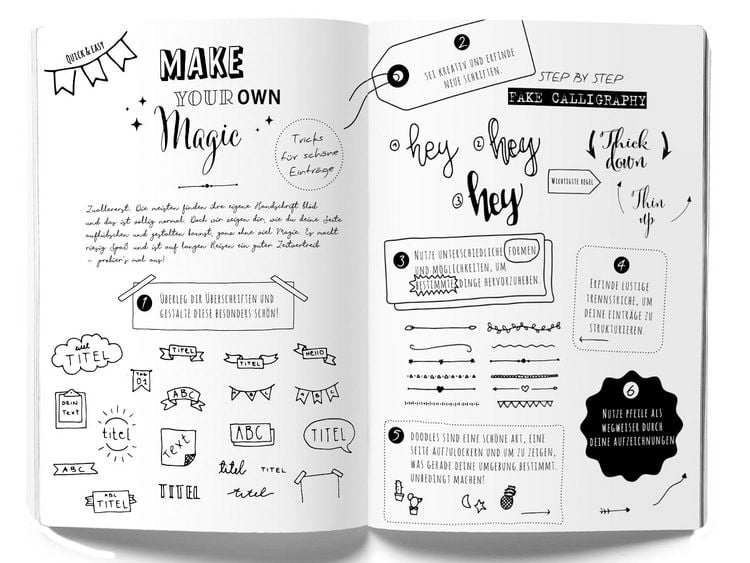 QUICK & EASY
MAKE
YOUR OWN
Magic
Tricks
für schöne
Einträge
Zuallererst: Die meisten finden ihre eigene Handschrift blöd
und das ist völlig normal. Doch wir zeigen dir, wie du deine Seite
aufhübschen und gestalten kannst, ganz ohne viel Magie. Es macht
riesig Spaß und ist auf langen Reisen ein guter Zeitvertreib
– probier's mal aus!
1 ÜBERLEG DIR ÜBERSCHRIFTEN UND
GESTALTE DIESE BESONDERS SCHÖN!
TITEL
TAG
01
TITEL
TITEL
HELLO
DEIN
TEXT
titel
ABC
ABC
ABC
TEXT
ABC
TITEL
ABC
titel
TITEL
ABC
TITEL
TITEL
titel
2
SEI KREATIV UND ERFINDE
NEUE SCHRIFTEN.
STEP BY STEP
FAKE CALLIGRAPHY
1 hey
2 hey
3 hey
WICHTIGSTE REGEL
Thick
down
Thin
up
3 NUTZE UNTERSCHIEDLICHE FORMEN
UND MÖGLICHKEITEN, UM
BESTIMMTE DINGE HERVORZUHEBEN.
4
ERFINDE LUSTIGE
TRENNSTRICHE, UM
DEINE EINTRÄGE ZU
STRUKTURIEREN.
5 DOODLES SIND EINE SCHÖNE ART, EINE
SEITE AUFZULOCKERN UND UM ZU ZEIGEN,
WAS GERADE DEINE UMGEBUNG BESTIMMT.
UNBEDINGT MACHEN!
6
NUTZE PFEILE ALS
WEGWEISER DURCH
DEINE AUFZEICHNUNGEN